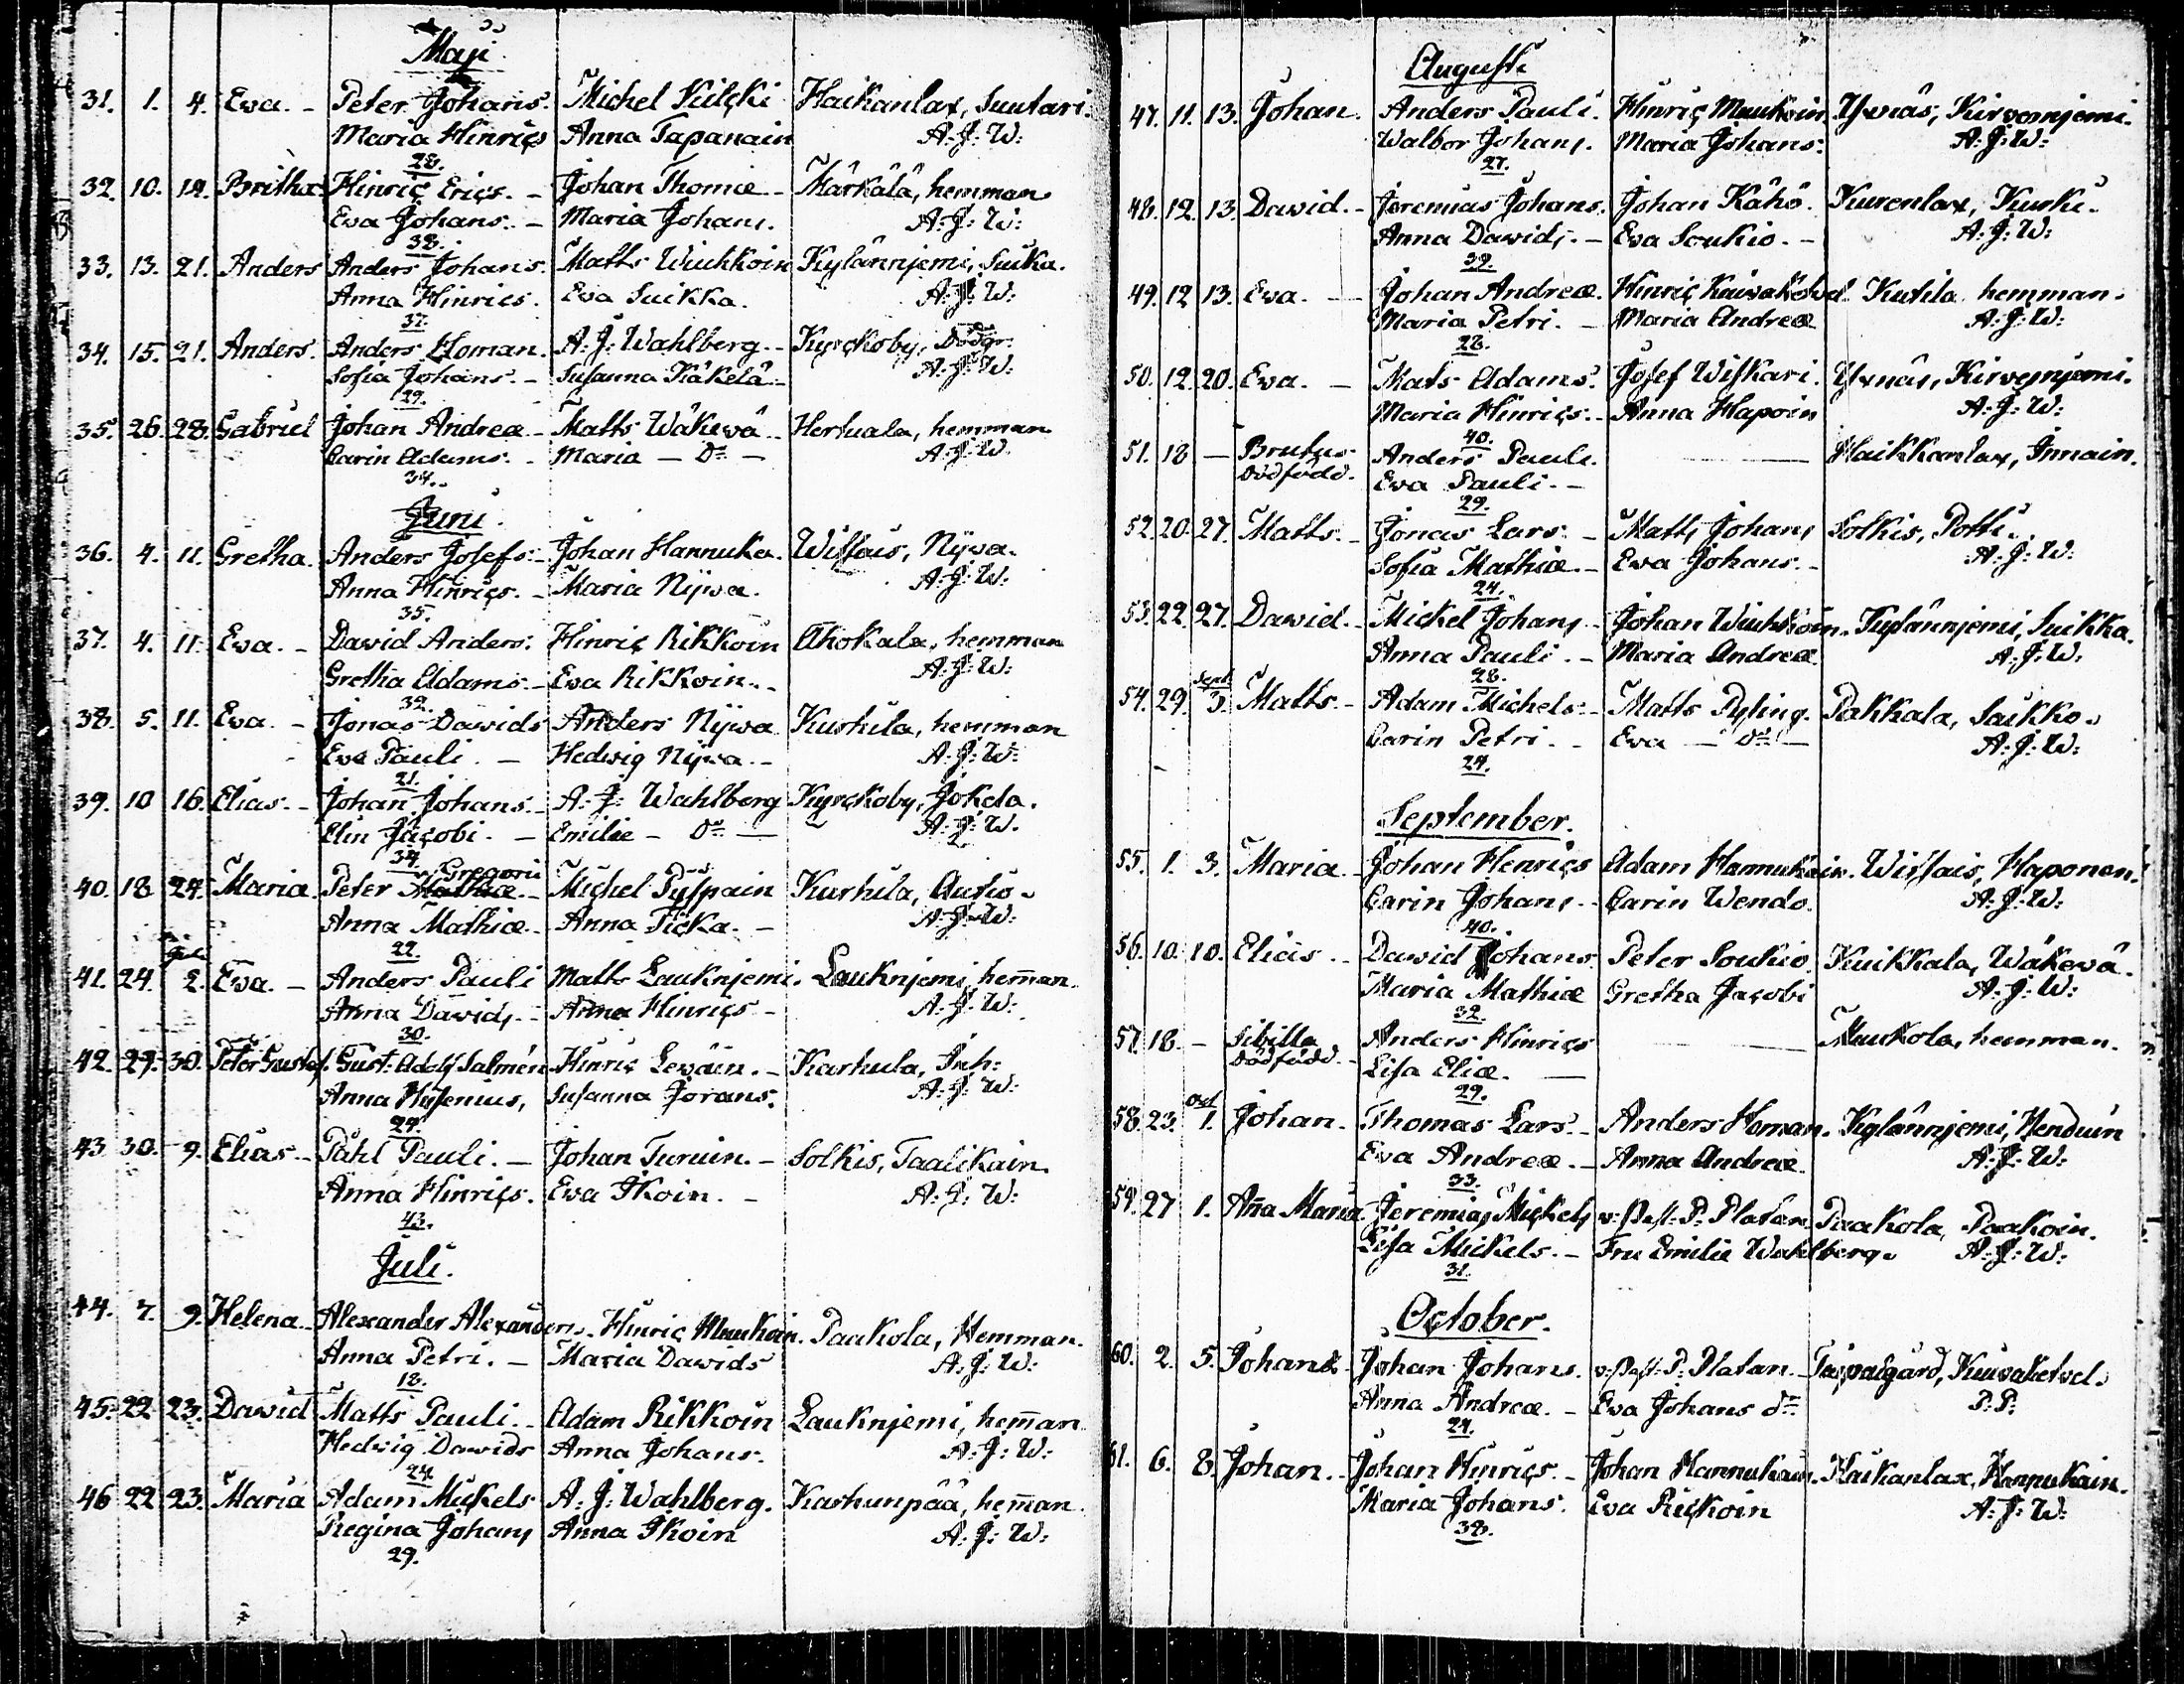 Maji
31. 1. 4. Ewa. - Peter Johans. Michel Kulcki Haikanlax, Suutari.
Maria Hinrics Anna Tapanain A: J: W:
28.
32. 10. 14. Britha Hinric Erics. - Johan Thomæ - Märkälä, hemman
Ewa Johans. - Maria Johans. A: J: W:
38.
33. 13. 21. Anders Anders Johans. Matts Wiuhkoin Kylännjemi, Suika.
Anna Hinrics. Ewa Suikka. A: J: W:
37.
34. 15. 21. Anders. Anders Homan. A: J: Wahlberg. - Kyrckoby, Dödgr:
Sofia Johans. - Susanna Käkelä. - A: J: W:
29.
35. 26. 28. Gabriel Johan Andreæ - Matts Wäkewä - Hertuala, hemman
Carin Adams. - Maria - D:o - A: J: W.
34.
Juni.
36. 4. 11. Gretha. Anders Josefs. - Johan Hannuka. Wilsais, Nijwa.
Anna Hinrics. - Maria Nijwa. A: J: W:
35.
37. 4. 11. Ewa. - Dawid Anders. Hinric Rikkoin Ahokala, hemman
Gretha Adams. - Ewa Rikkoin. - A: J: W:
32.
38. 5. 11. Ewa. - Jonas Dawids Anders Nijwa Kurhila, hemman
Ewa Pauli. - Hedwig Nijwa. - A: J: W:
21.
39. 10 16. Elias. - Johan Johans. - A: J: Wahlberg Kyrckoby, Jokela.
Elin Jacobi. - Emilie - D:o - A: J: W.
34.
Gregorii
40. 18 24. Maria. Peter Mathiæ. - Michel Pylspain Kurhila, Autio.
Anna Mathiæ. - Anna Ticka. - A: J: W:
22.
41. 24. 2. Ewa. - Anders Pauli Matts Lauknjemi. Lauknjemi, hem̄an.
Anna Dawids. - Anna Hinrics - A: J: W:
30.
42. 29. 30. Peter Gustaf. Gust: Adolf Salmén Hinric Lewäin. - Karhula, Inh:
Anna Husenius, Susanna Jorans. A: J: W:
24.
43 30. 9. Elias. - Påhl Pauli. - Johan Turuin. - Solkis, Taalikain
Anna Hinrics. Ewa Ikoin. - A: J: W:
43.
Juli.
44. 7. 9. Helena. - Alexander Alexanders. - Hinric Muukoin. Paakola, Hemman.
Anna Petri. - Maria Dawids A: J: W:
18.
45. 22 23. Dawid Matts Pauli. - Adam Rikkoin Lauknjemi, hem̄an
Hedwig Dawids Anna Johans. A: J: W:
24.
46 22 23. Maria Adam Mickels A: J: Wahlberg. Karhunpää, hem̄an.
Regina Johans Anna Ikoin A: J: W:
29.
Augusti
47. 11. 13. Johan. Anders Pauli. Hinric Muukoin Yxnäs, Kirvesnjemi.
Walbor Johans. Maria Johans. A: J: W:
27.
48. 12. 13. Dawid. - Jeremias Johans. Johan Kähö. Kurenlax, Kurki.
Anna Dawids. - Ewa Soukio. - A: J: W:
39.
49. 12 13. Ewa. - Johan Andreæ. Hinric Kaiwaketvel Kutila hemman.
Maria Petri. - Maria Andreæ A: J: W:
28.
50. 12. 20. Ewa. - Mats Adams. Josef Wiskari. Yxnäs, Kirvesnjemi.
Maria Hinrics. - Anna Hapoin A: J: W:
40.
51. 18 - Brutus Anders Pauli. Haikkanlax, Innain.
Dödfödd. Ewa Pauli. -
29.
52. 20. 27. Matts. - Jonas Lars. - Matts Johans Solkis, Potti.
Sofia Mathiæ. - Ewa Johans. - A: J: W:
24.
53. 22. 27. Dawid. - Mickel Johans. - Johan Wiuhkoin. Kylännjemi, Suikka.
Anna Pauli. - Maria Andreæ A: J: W.
28.
Sept:
54. 29. 3. Matts. - Adam Michels. - Matts Pyling. Pakkala, Saikko.
Carin Petri. - Ewa - D:o - A: J: W:
24.
September.
55. 1. 3. Maria. Johan Henrics Adam Hannukain. Wilsais, Haponen.
Carin Johans. - Carin Wendo. A: J: W:
40.
56. 10. 10. Elias. - Dawid Johans. Peter Soukio Kuikkala, Wäkewä.
Maria Mathiæ Gretha Jacobi A: J: W:
32.
57. 18. - Sibilla Anders Hinrics Muukola, hemman.
Dödfödd. - Lisa Eliæ. -
29.
Oct
58. 23. 1. Johan. Thomas Lars. - Anders Homan. Kylännjemi, Henduin
Ewa Andreæ. - Anna Andreæ. A: J: W:
33.
59. 27 1. An̄a Maria Jeremias Mickels v: Past: P: Platan Paakola, Paakoin.
Lisa Mickels. - Fru Emilie Wahlberg. A: J: W:
31.
October.
60. 2. 5. Johan. Johan Johans. v: Past: P: Platan. - Kuivaketvel.
Anna Andreæ. - Ewa Johans D:r P: P:
24.
61. 6. 8. Johan. - Johan Hinrics. - Johan Hannukain. Haikanlax, Hannukain.
Maria Johans. Ewa Rickoin A: J: W:
38.